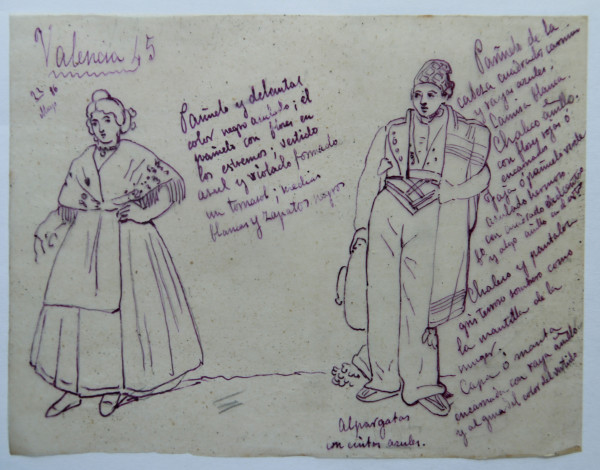 Valencia 45
Pañuelo y delental
color negro azulado; el
pañuelo con flores en
los estremos; vestido
azul y violado formando
un tornasol; medias
blancas y zapatos negros
Pañuelo de la
cabeza cuadrados carmin
y rayas azules;
Camisa blanca.
Chaleco amillo.
con flores rojas ó
encarnadas
Faja ó pañuelo
azulado
con cuadrados
y
Chaleco y pantalon
gris terroso sombros como
la mantilla de la
muger.
Capa ó manta
encarnada con raya amillo
y alguna del color del vestido
Alpargatas
con cintas azules.